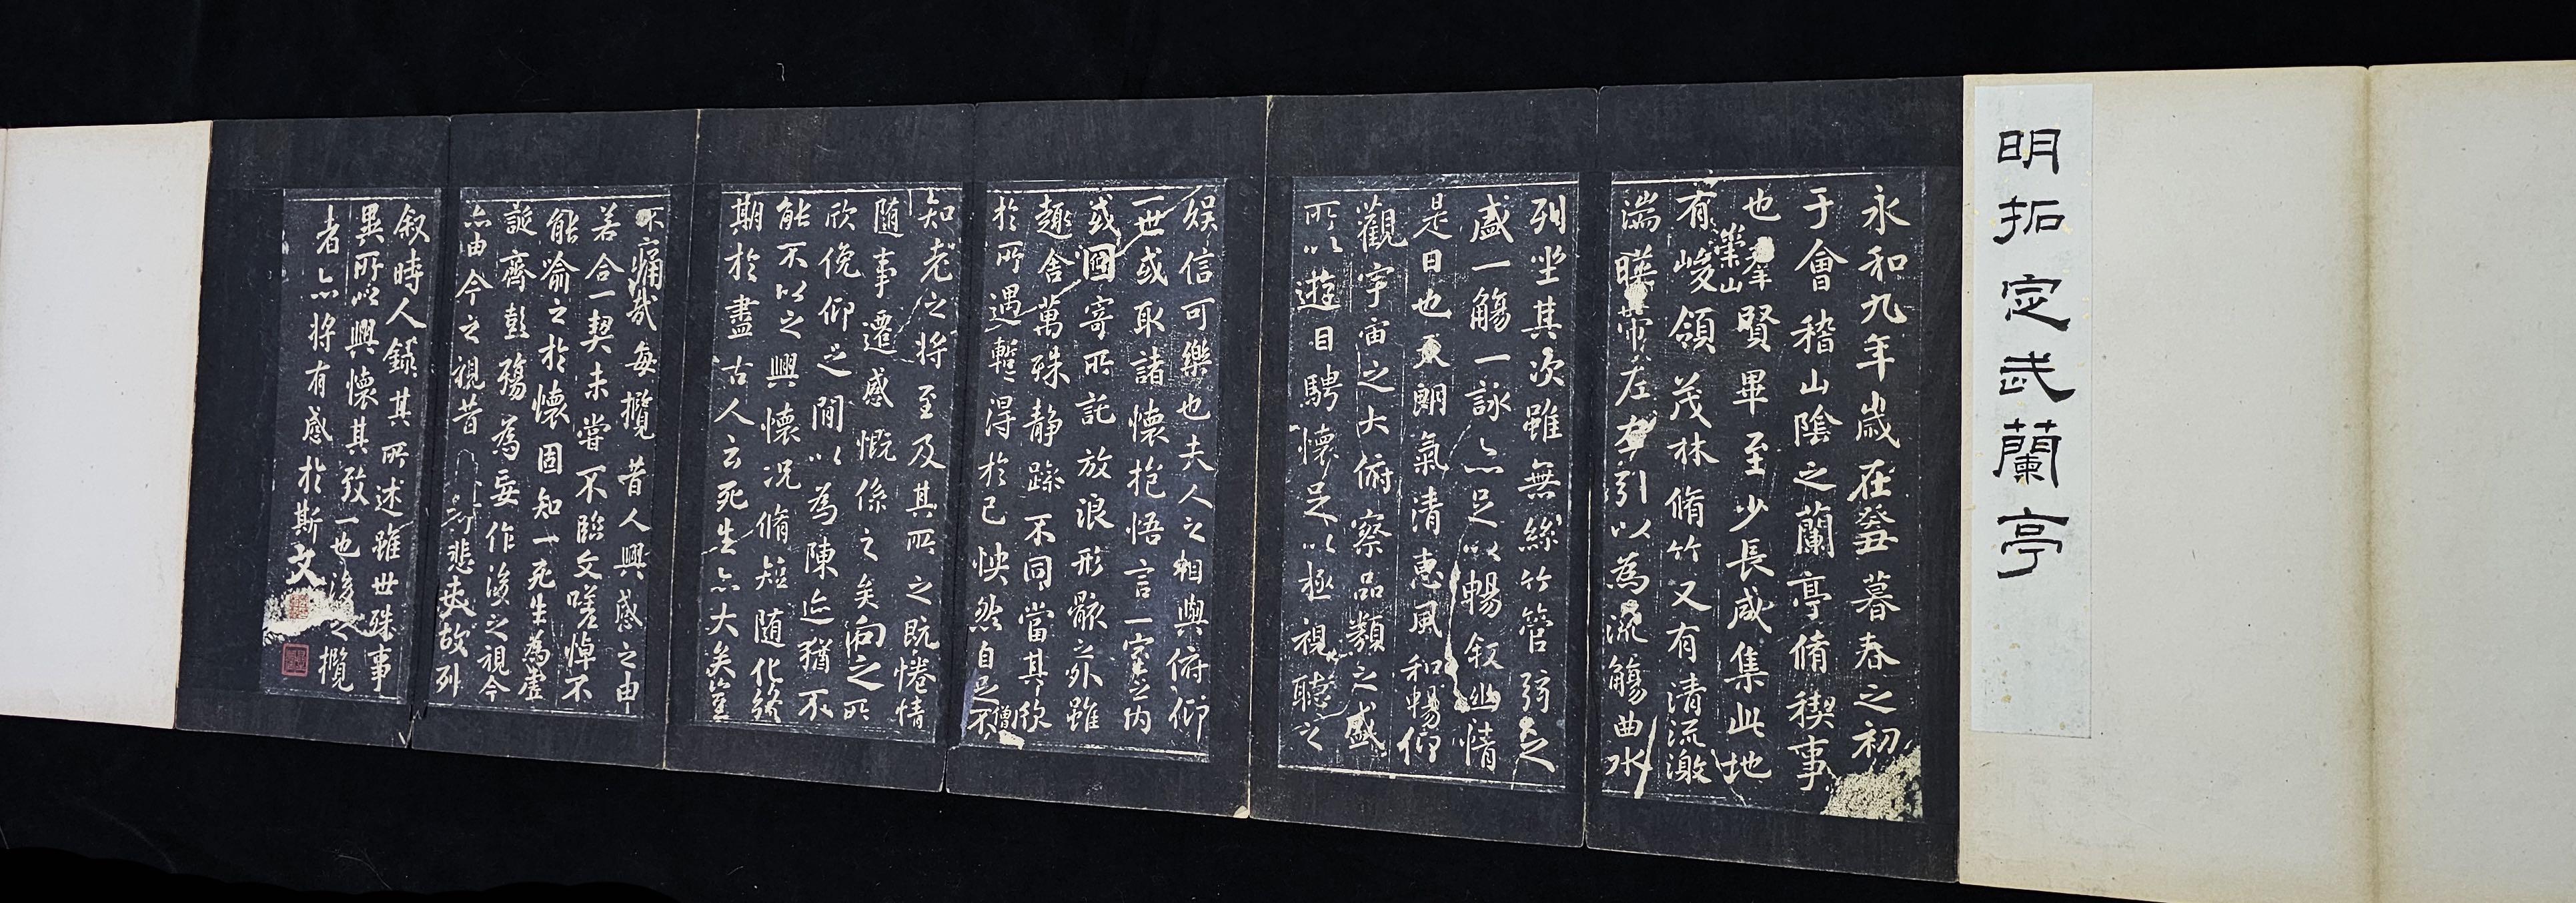 明拓定武蘭亭
永和九年歲在癸丑暮春之初
于會稽山陰之蘭亭脩稧事
也羣賢畢至少長咸集此地
有崇山峻領茂林脩竹又有清流激
湍暎帶左右引以為流觴曲水
列坐其次雖無絲竹管弦之
盛一觴一詠亦足以暢叙幽情
是日也天朗氣清惠風和暢仰
觀宇宙之大俯察品類之盛
所以遊目騁懷足以極視聽之
娛信可樂也夫人之相與俯仰
一世或取諸懷抱悟言一室之內
或因寄所託放浪形骸之外雖
趣舍萬殊静躁不同當其欣
於所遇蹔得於己怏然自足不
僧
知老之將至及其所之既惓情
隨事遷感慨係之矣向之所
欣俛仰之閒以為陳迹猶不
能不以之興懷況脩短隨化終
期於盡古人云死生亦大矣豈
不痛哉每攬昔人興感之由
若合一契未嘗不臨文嗟悼不
能喻之於懷固知一死生為虛
誕齊彭殤為妄作後之視今
亦由今之視昔悲夫故列
叙時人錄其所述雖世殊事
異所以興懷其致一也後之攬
者亦將有感於斯文